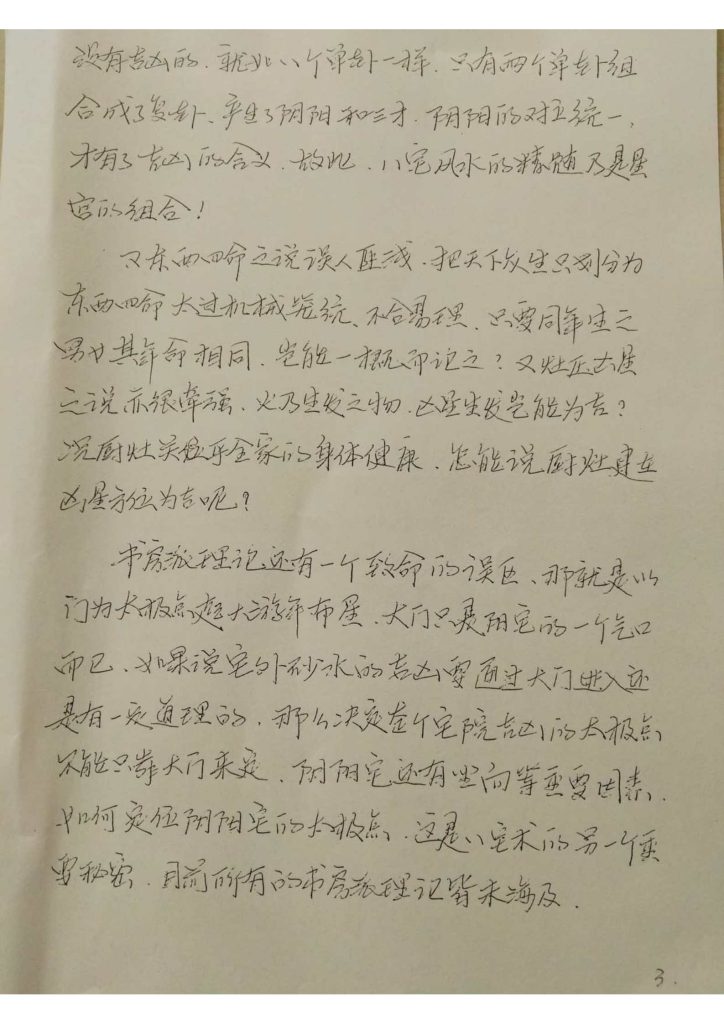 没有吉凶的，就如八个单卦一样，只有两个单卦组
合成了复卦、产生了阴阳和三才，阴阳的对立统一，
才有了吉凶的含义，故此，八宅风水的精髓乃是星
宫的组合！
又东西四命之说误人匪浅，把天下众生只划分为
东西四命太过机械笼统、不合易理，只要同年生之
男女其年命相同，岂能一概而论之？又灶压凶星
之说亦很牵强，火乃生发之物，凶星生发岂能为吉？
况厨灶关乎全家的身体健康，怎能说厨灶建在
凶星方位为吉呢？
书房派理论还有一个致命的误区、那就是以
门为太极点起大游年布星，大门只是阳宅的一个气口
而已，如果说宅外砂水的吉凶要通过大门进入还
是有一定道理的，那么决定整个宅院吉凶的太极点
不能只靠大门来定，阴阳宅还有坐向等重要因素，
如何定位阴阳宅的太极点，这是八宅术的另一个重
要秘密，目前所有的书房派理论皆未涉及．
3.